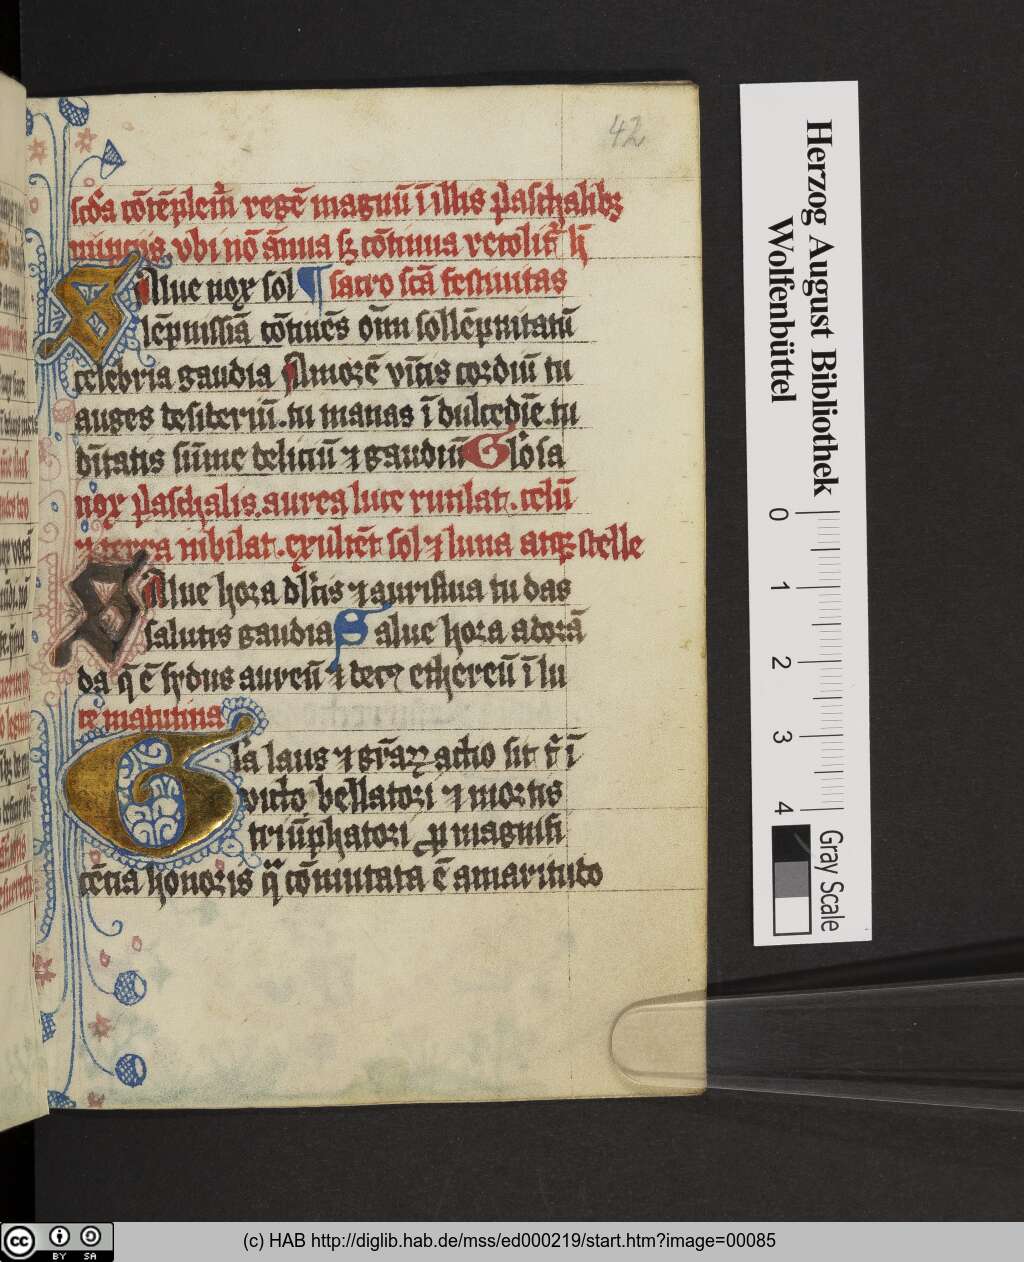 42
scd̄a cōtēplem̄ regē magnū ī illis pͣaschalibꝫ
nupciis, vbi nō āīma sꝫ cōtinua recolit᷑
Alue nox sol ¶ sacro scā festiuitas
lēpnissīā cōtinēs oīm sollēpnitatū
celebria gaudia Amorē vr̄tis cordiū tu
auges desideriū. tu manas ī dulcedīe. tu
dītatis sūme deliciū ⁊ gaudiū Glōsa
nox pͣaschalis. aurea luce rutilat. celū
⁊ terra iubilat. exultēt sol ⁊ luna atqꝫ stelle
Salue hora dl̄cis ⁊ auriflua tu das
salutis gaudia Salue hora adorā
da q̄ ē sydus aureū ⁊ decꝰ ethereū ī lu
ce matutina
Gl̄ia laus ⁊ grāꝝ actio sit t̄ ī
victo bellatori ⁊ mortis
triūphatori ꝓ magnifi
cētia honoris q̄ cōmutata ē amaritudo
Herzog August Bibliothek
Wolfenbüttel
0
1
2
3
4
Gray Scale
cc BY SA
(c) HAB http://diglib.hab.de/mss/ed000219/start.htm?image=00085